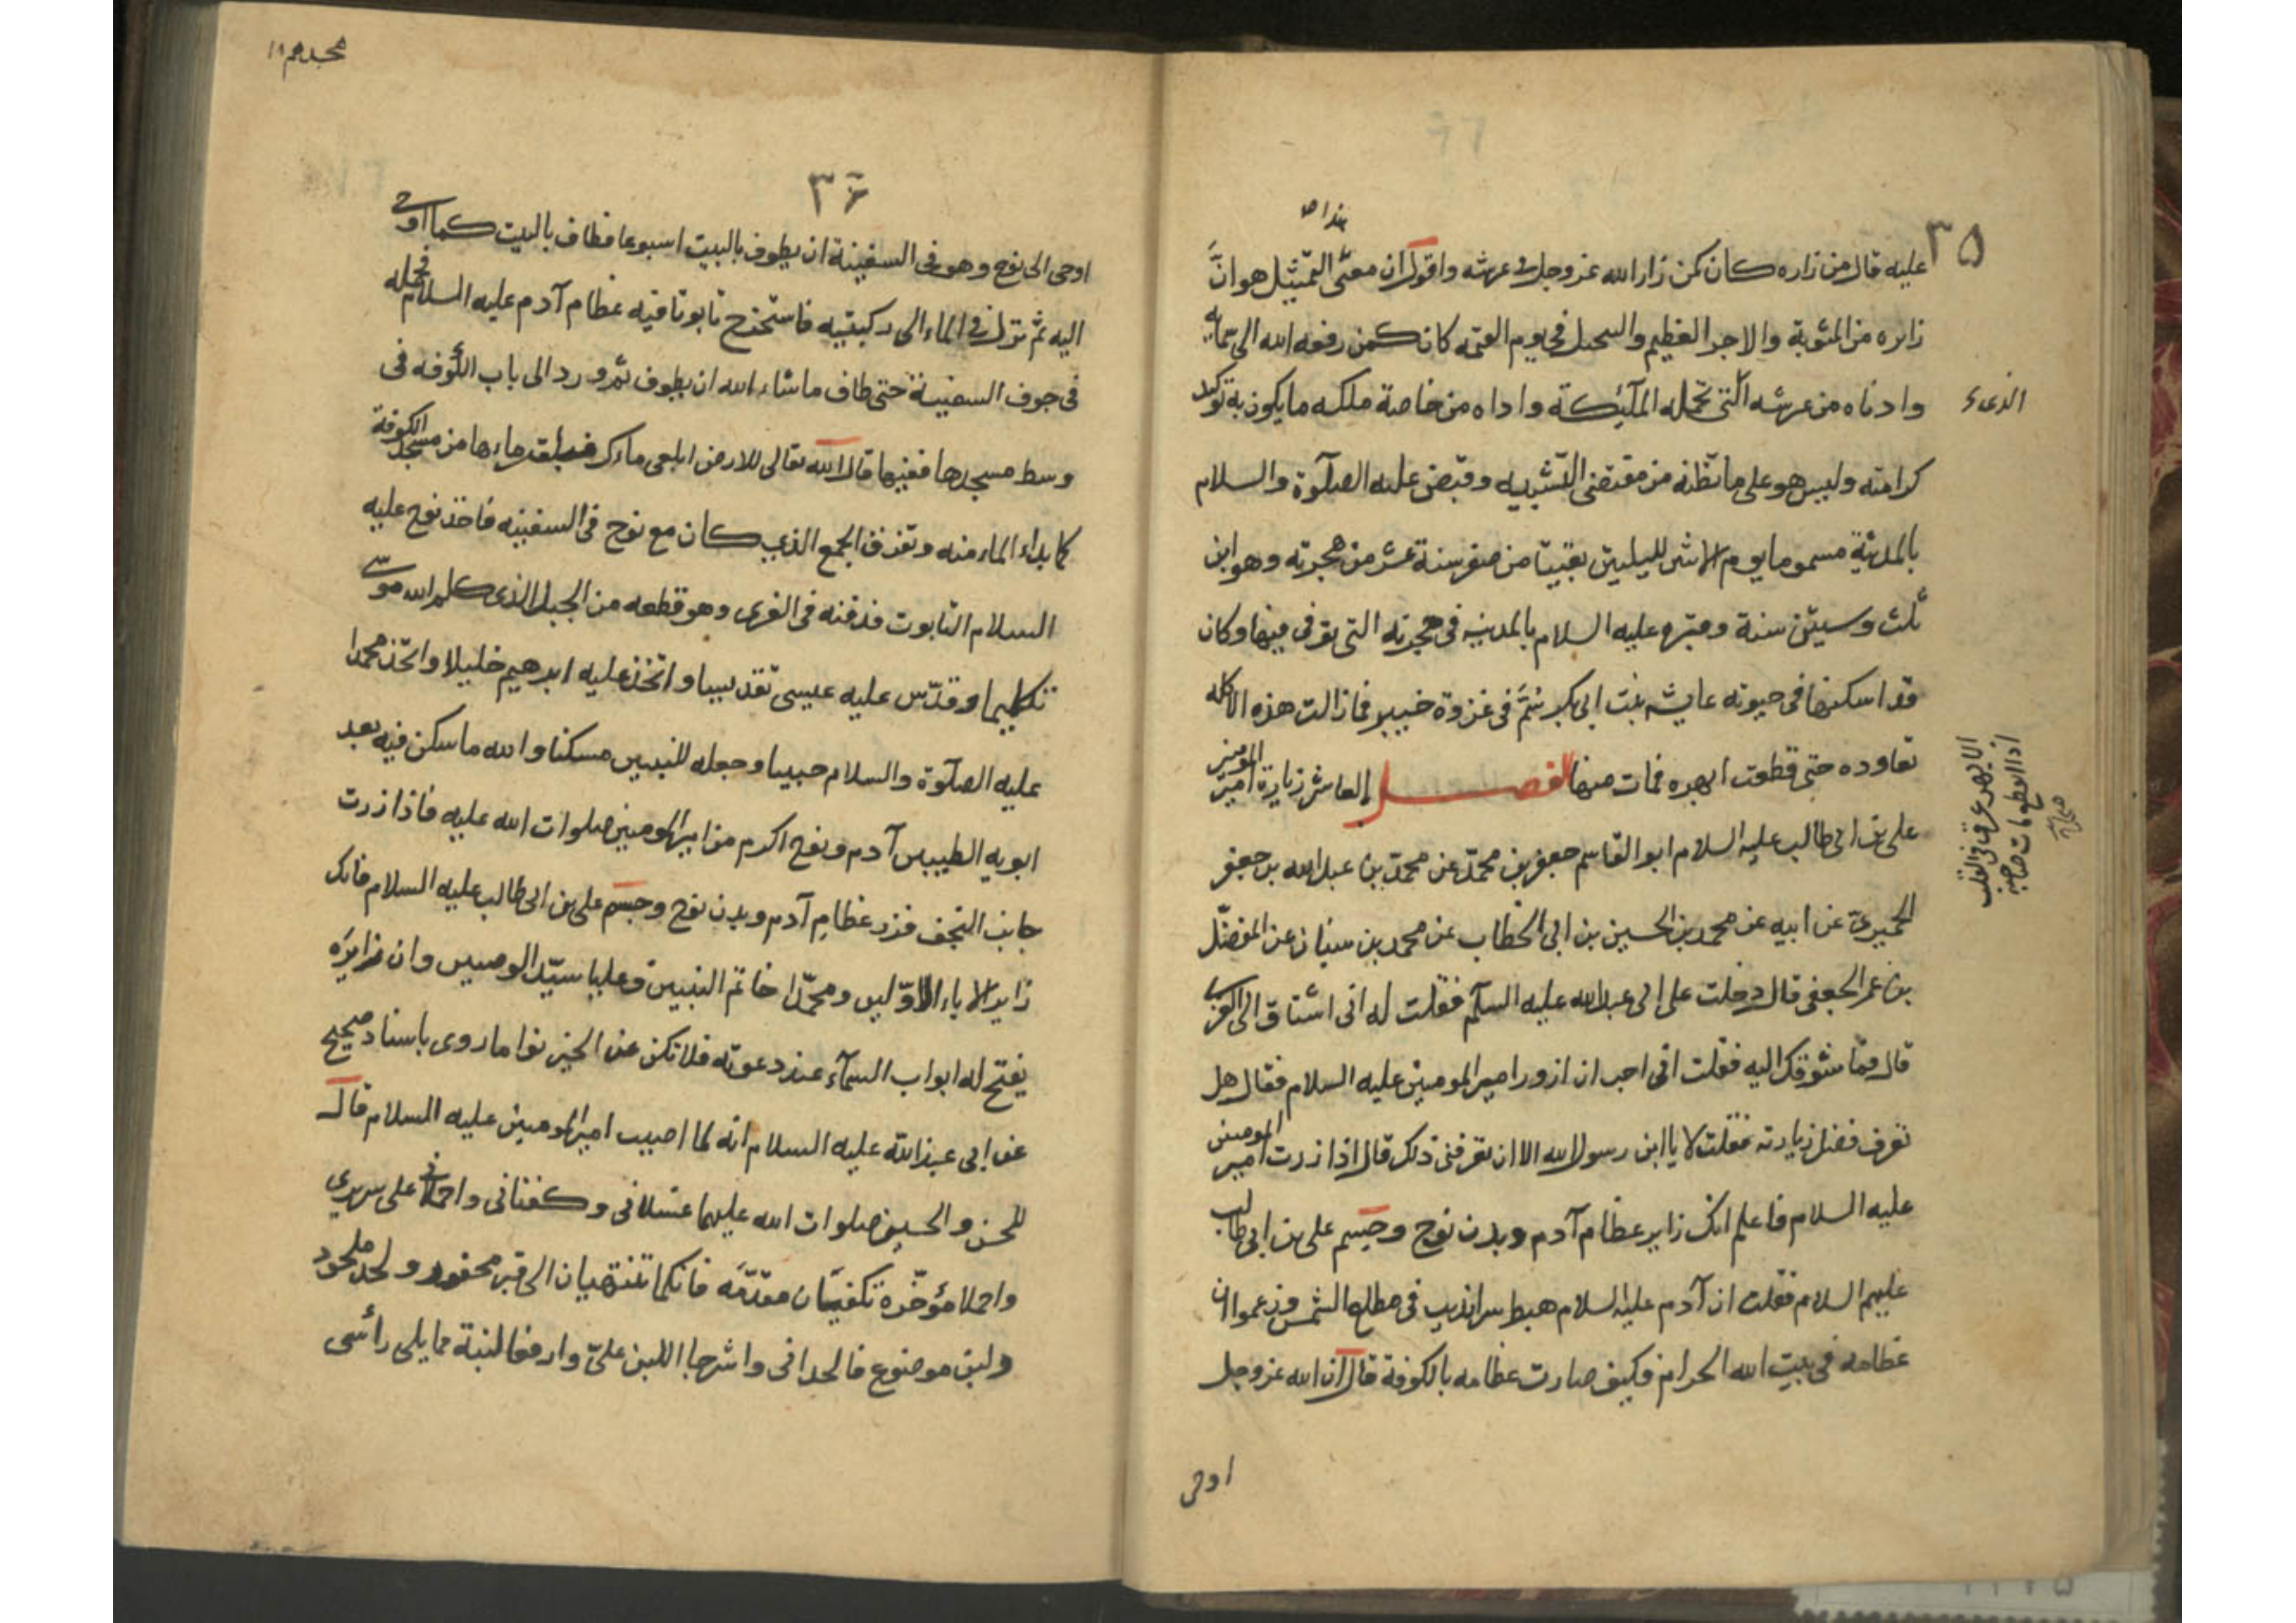 ٣٥
هذا ص
عليه قال من زاره كان كمن زار الله عز وجل فى عرشه واقول ان معنى التمثيل هو انّ
زايره من المثوبة والاجر العظيم والتبجيل فى يوم القيمه كان كمن رفعه الله الى سمائه
وادناه من عرشه التى تحمله الملئكة واراه من خاصة ملكه ما يكون به توكيد
الذى
كرامته وليس هو على ما تظنه من مقتضى التشبيه وقبض عليه الصلوة والسلام
بالمدينة مسموما يوم الاثنين لليلتين بقيتا من صفر سنة عشر من هجرته وهو ابن
ثلث وستين سنة وقبره عليه السلام بالمدينه فى حجرته التى توفى فيها وكان
قد اسكنها فى حيوته عايشه بنت ابى بكر سُمّ فى غزوة خيبر فما زالت هذه الاكله
تعاوده حتى قطعت ابهره فمات منها الفصل العاشر زيارة امير المومنين
الابهر عرق فى القلب
اذا انقطع مات صاحبه
صحاح
على بن ابى طالب عليه السلام ابو القاسم جعفر بن محمد عن محمد بن عبد الله بن جعفر
الحميرى عن ابيه عن محمد بن الحسين بن ابى الخطاب عن محمد بن سنان عن المفضل
بن عمر الجعفى قال دخلت على ابى عبد الله عليه السلم فقلت له انى اشتاق الى الغرى
قال فما شوقك اليه فقلت انى احب ان ازور امير المومنين عليه السلام فقال هل
تعرف فضل زيارته فقلت لا يا ابن رسول الله الا ان تعرفنى ذلك قال اذا زرت امير المومنين
عليه السلام فاعلم انك زاير عظام آدم وبدن نوح وجسم على بن ابى طالب
عليهم السلام فقلت ان آدم عليه السلام هبط سرانديب فى مطلع الشمس وزعموا ان
عظامه فى بيت الله الحرام فكيف صارت عظامه بالكوفة قال ان الله عز وجل
اوحى
٣٦
اوحى الى نوح وهو فى السفينة ان يطوف بالبيت اسبوعا فطاف بالبيت كما اوحى
اليه ثم نزل فى الماء الى ركبتيه فاستخرج تابوتا فيه عظام آدم عليه السلام فحمله
فى جوف السفينة حتى طاف ما شاء الله ان يطوف ثم ورد الى باب الكوفه فى
وسط مسجدها ففيها قال الله تعالى للارض ابلعى ماءك فبلعت ماءها من مسجد الكوفة
كما بداء الماء منه وتفرق الجمع الذى كان مع نوح فى السفينه فاخذ نوح عليه
السلام التابوت فدفنه فى الغرى وهو قطعه من الجبل الذى كلم الله موسى
تكليما وقدّس عليه عيسى تقديسا واتخذ عليه ابرهيم خليلا واتخذ محمدا
عليه الصلوة والسلام حبيبا وجعله للنبيين مسكنا والله ما سكن فيه بعد
ابويه الطيبين آدم ونوح اكرم من امير المومنين صلوات الله عليه فاذا زرت
جانب النجف فزر عظام آدم وبدن نوح وجسم على بن ابى طالب عليه السلام فانك
زاير الاباء الاوّلين ومحمّدا خاتم النبيين وعليا سيّد الوصيين وان زايره
يفتح له ابواب السمآء عند دعوته فلا تكن عن الخير نواما روى باسناد صحيح
عن ابى عبد الله عليه السلام انه لما اصيب امير المومنين عليه السلام قال
للحسن والحسين صلوات الله عليهما غسلانى وكفنانى واحملانى على سريرى
واحملا مؤخّره تكفيان مقدّمه فانكما تنتهيان الى قبر محفور ولحد ملحود
ولبن موضوع فالحدانى واشرجا اللبن علىّ وارفعا لبنة مما يلى رأسى